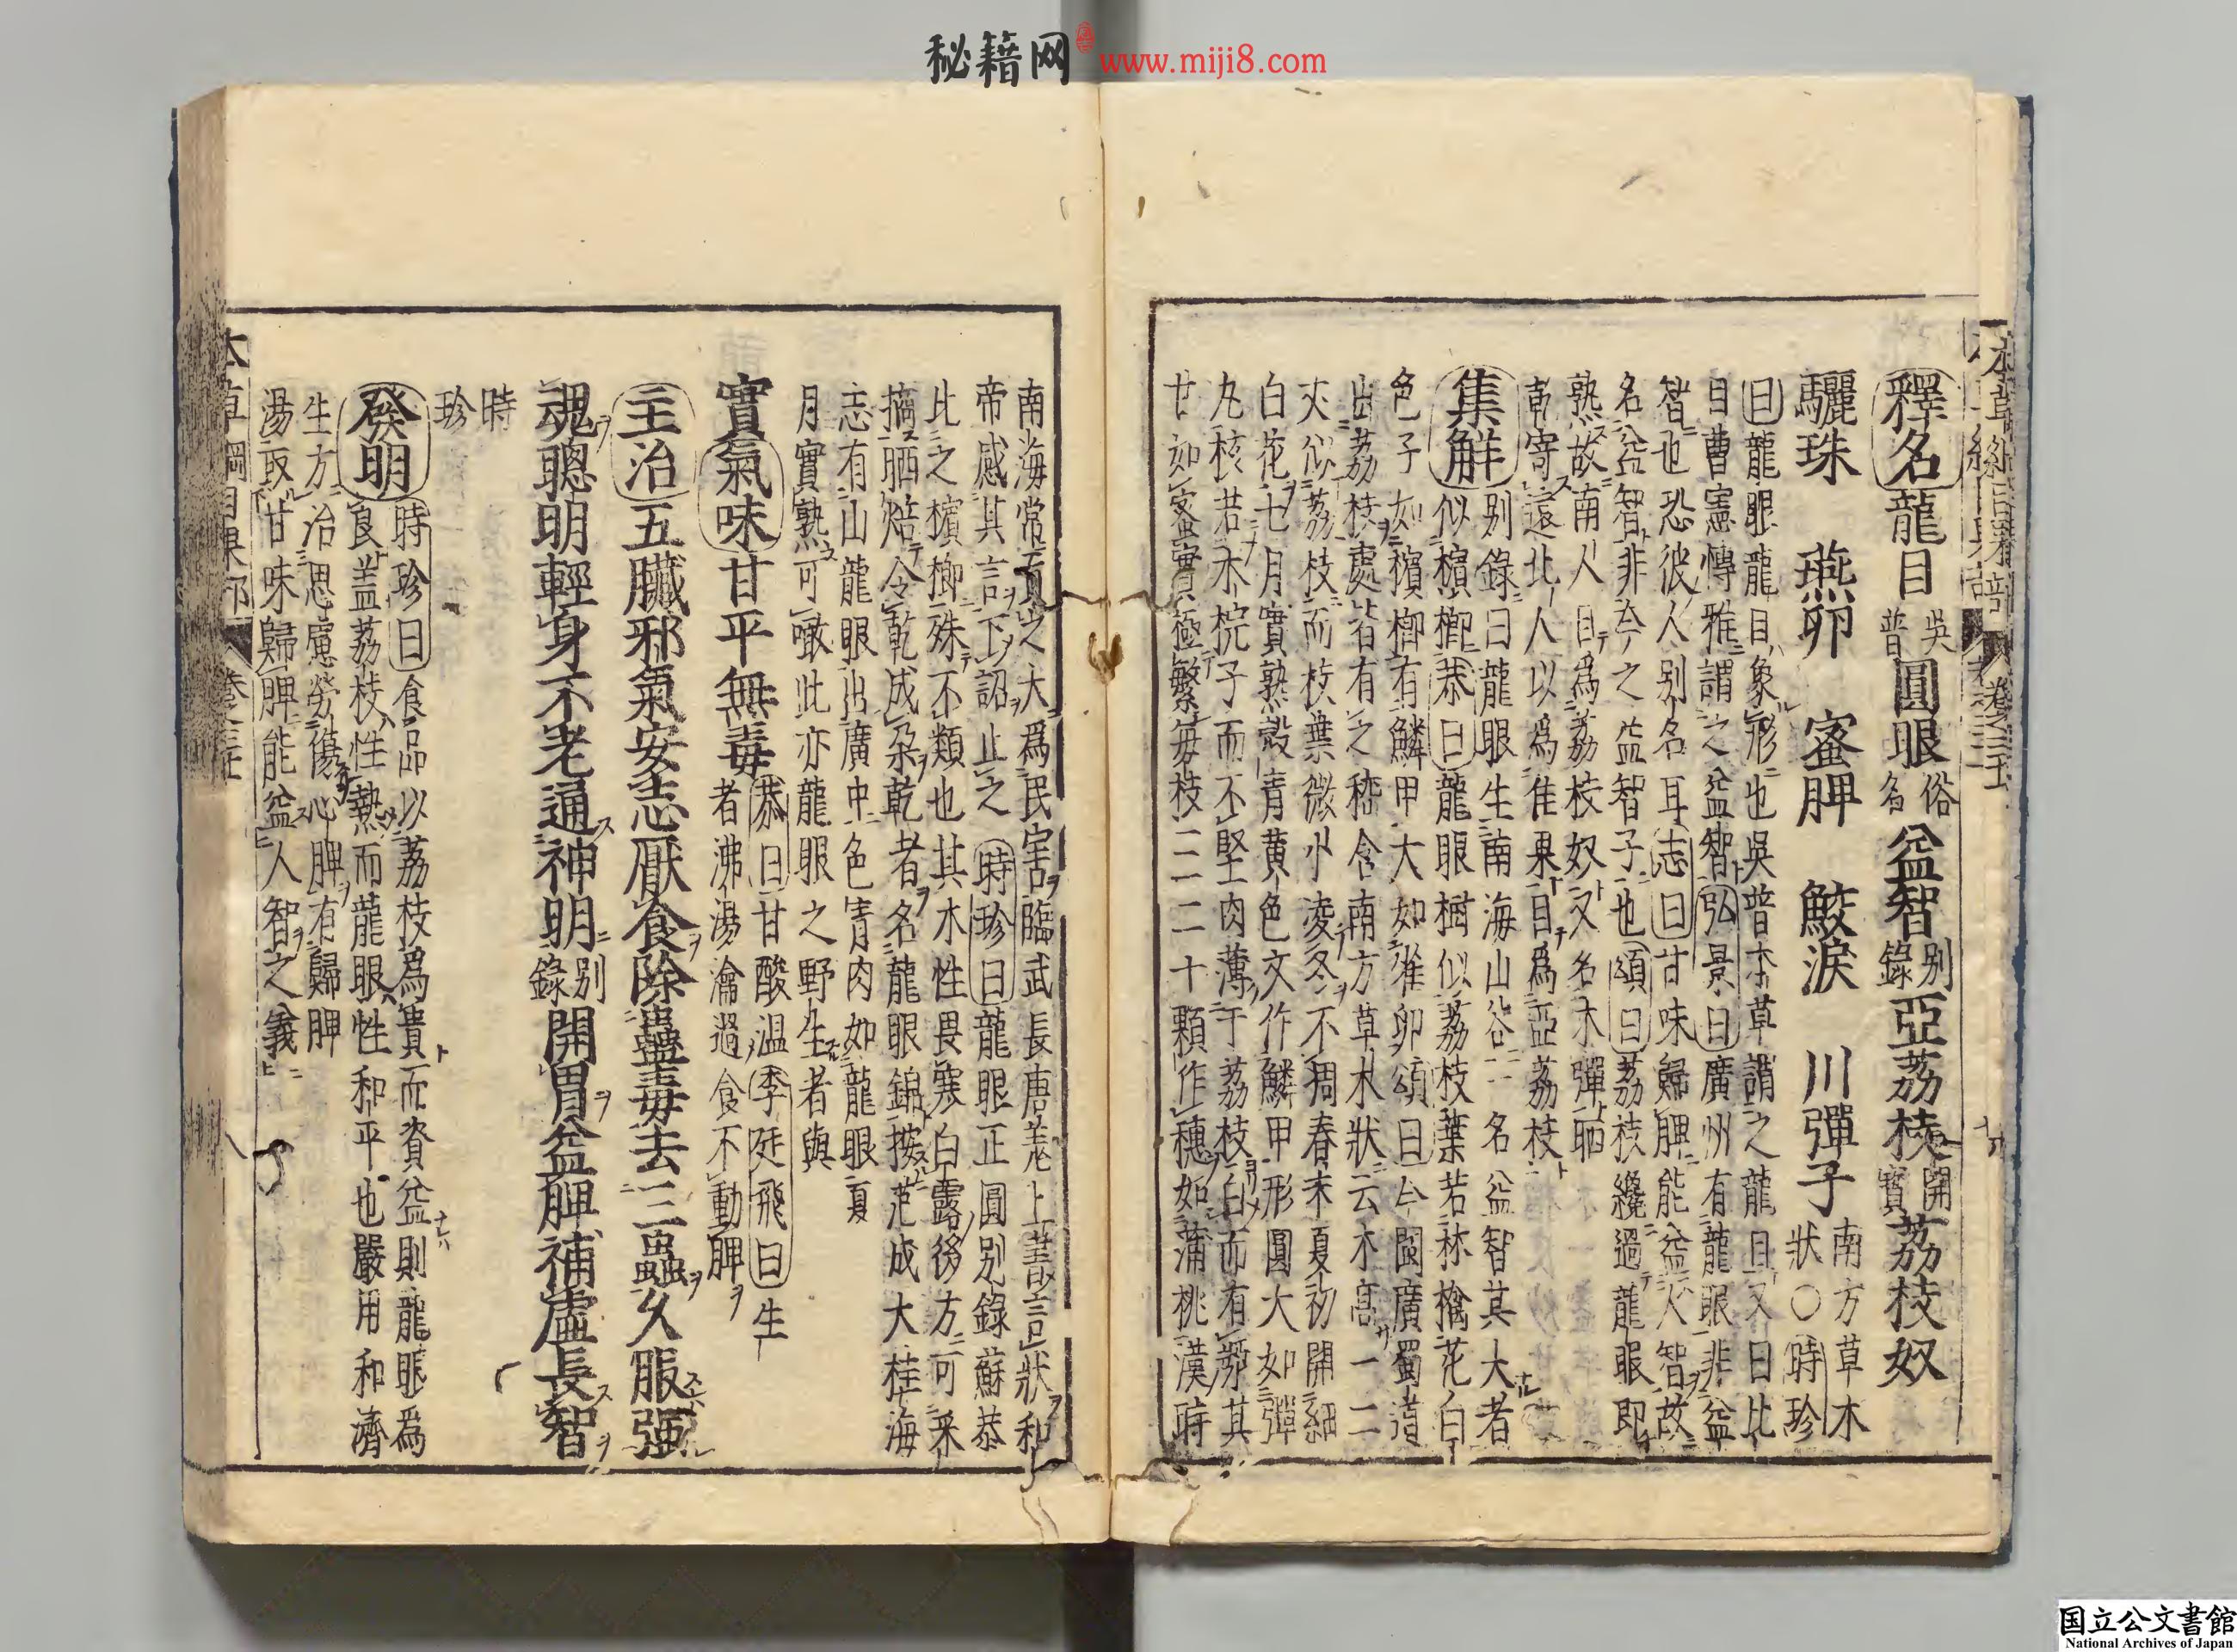 秘籍网 www.miji8.com
釋名龍目吳普圓眼俗名益智别錄亞荔枝開寳荔枝奴
驪珠 燕卵 蜜脾 鮫淚 川彈子南方草木狀〇時珍
曰龍眼龍目象形也吳普本草謂之龍目又曰比
目曹憲博雅謂之益智弘景曰廣州有龍眼非益
智也恐彼人别名耳志曰甘味歸脾能益人智故
名益智非今之益智子也頌曰荔枝纔過龍眼即
熟故南人目爲荔枝奴又名木彈晒
乾寄遠北人以爲佳果目爲亞荔枝
集解别錄曰龍眼生南海山谷一名益智其大者
似檳榔恭曰龍眼樹似荔枝葉若林檎花白
色子如檳榔有鱗甲大如雀卵頌曰今閩廣蜀道
出荔枝處皆有之嵇含南方草木狀云木高一二
丈似荔枝而枝葉微小凌冬不凋春末夏初開細
白花七月實熟殼青黄色文作鱗甲形圓大如彈
丸核若木梡子而不堅肉薄于荔枝白而有漿其
甘如蜜實極繁每枝三二十顆作穗如蒲桃漢時
南海常貢之大爲民害臨武長唐羌上書言狀和
帝感其言下詔止之時珍曰龍眼正圓别錄蘇恭
比之檳榔殊不類也其木性畏寒白露後方可采
摘晒焙令乾成朶乾者名龍眼錦按范成大桂海
志有山龍眼出廣中色青肉如龍眼夏
月實熟可噉此亦龍眼之野生者與
實氣味甘平無毒恭曰甘酸温李廷飛曰生
者沸湯瀹過食不動脾
主治五臟邪氣安志厭食除蠱毒去三蟲久服强
魂聰明輕身不老通神明别錄開胃益脾補虛長智
時
珍
發明時珍曰食品以荔枝爲貴而資益則龍眼爲
良葢荔枝性熱而龍眼性和平也嚴用和濟
生方治思慮勞傷心脾有歸脾
湯取甘味歸脾能益人智之義
国立公文書館
National Archives of Japan